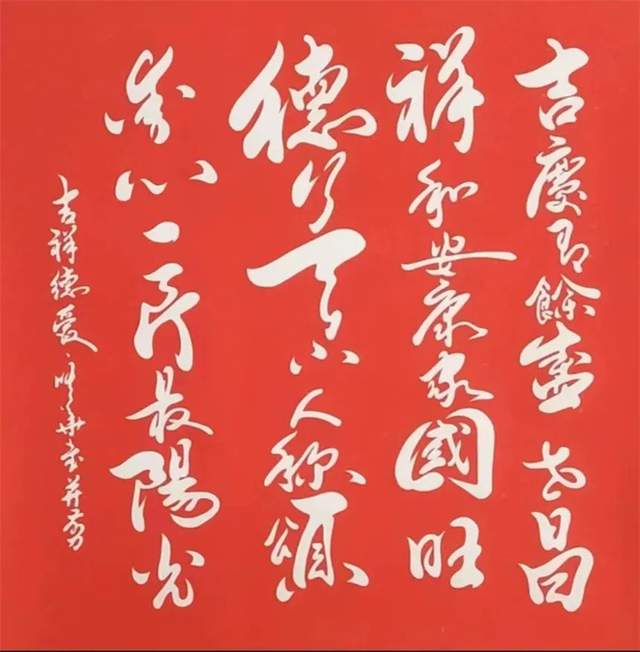 吉慶有餘盛世昌
祥和安康家國旺
德行天下人称頌
愛心一片最陽光
吉祥德愛 華書并剪